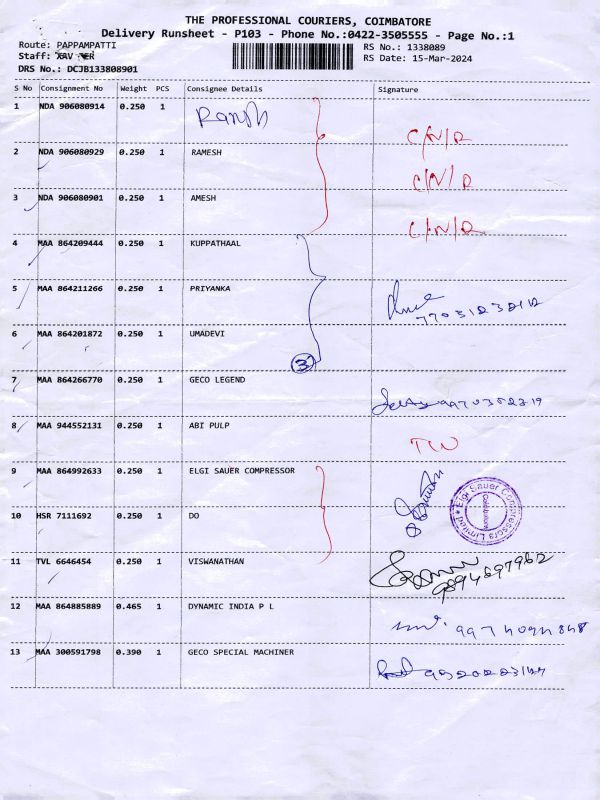 THE PROFESSIONAL COURIERS, COIMBATORE
Delivery Runsheet - P103 - Phone No.:0422-3505555 - Page No.:1
Route: PAPPAMPATTI RS No.: 1338089
Staff: RS Date: 15-Mar-2024
DRS No.: DCJB133808901
S No Consignment No Weight PCS Consignee Details Signature
1 NDA 906080914 0.250 1
C/N/R
2 NDA 906080929 0.250 1 RAMESH
C/N/R
3 NDA 906080901 0.250 1 AMESH
C/N/R
4 MAA 864209444 0.250 1 KUPPATHAAL
5 MAA 864211266 0.250 1 PRIYANKA
6 MAA 864201872 0.250 1 UMADEVI
3
7 MAA 864266770 0.250 1 GECO LEGEND
8 MAA 944552131 0.250 1 ABI PULP
9 MAA 864992633 0.250 1 ELGI SAUER COMPRESSOR
Elgi Sauer Compressors Limited
10 HSR 7111692 0.250 1 DO
11 TVL 6646454 0.250 1 VISWANATHAN
9894697962
12 MAA 864885889 0.465 1 DYNAMIC INDIA P L
13 MAA 300591798 0.390 1 GECO SPECIAL MACHINER